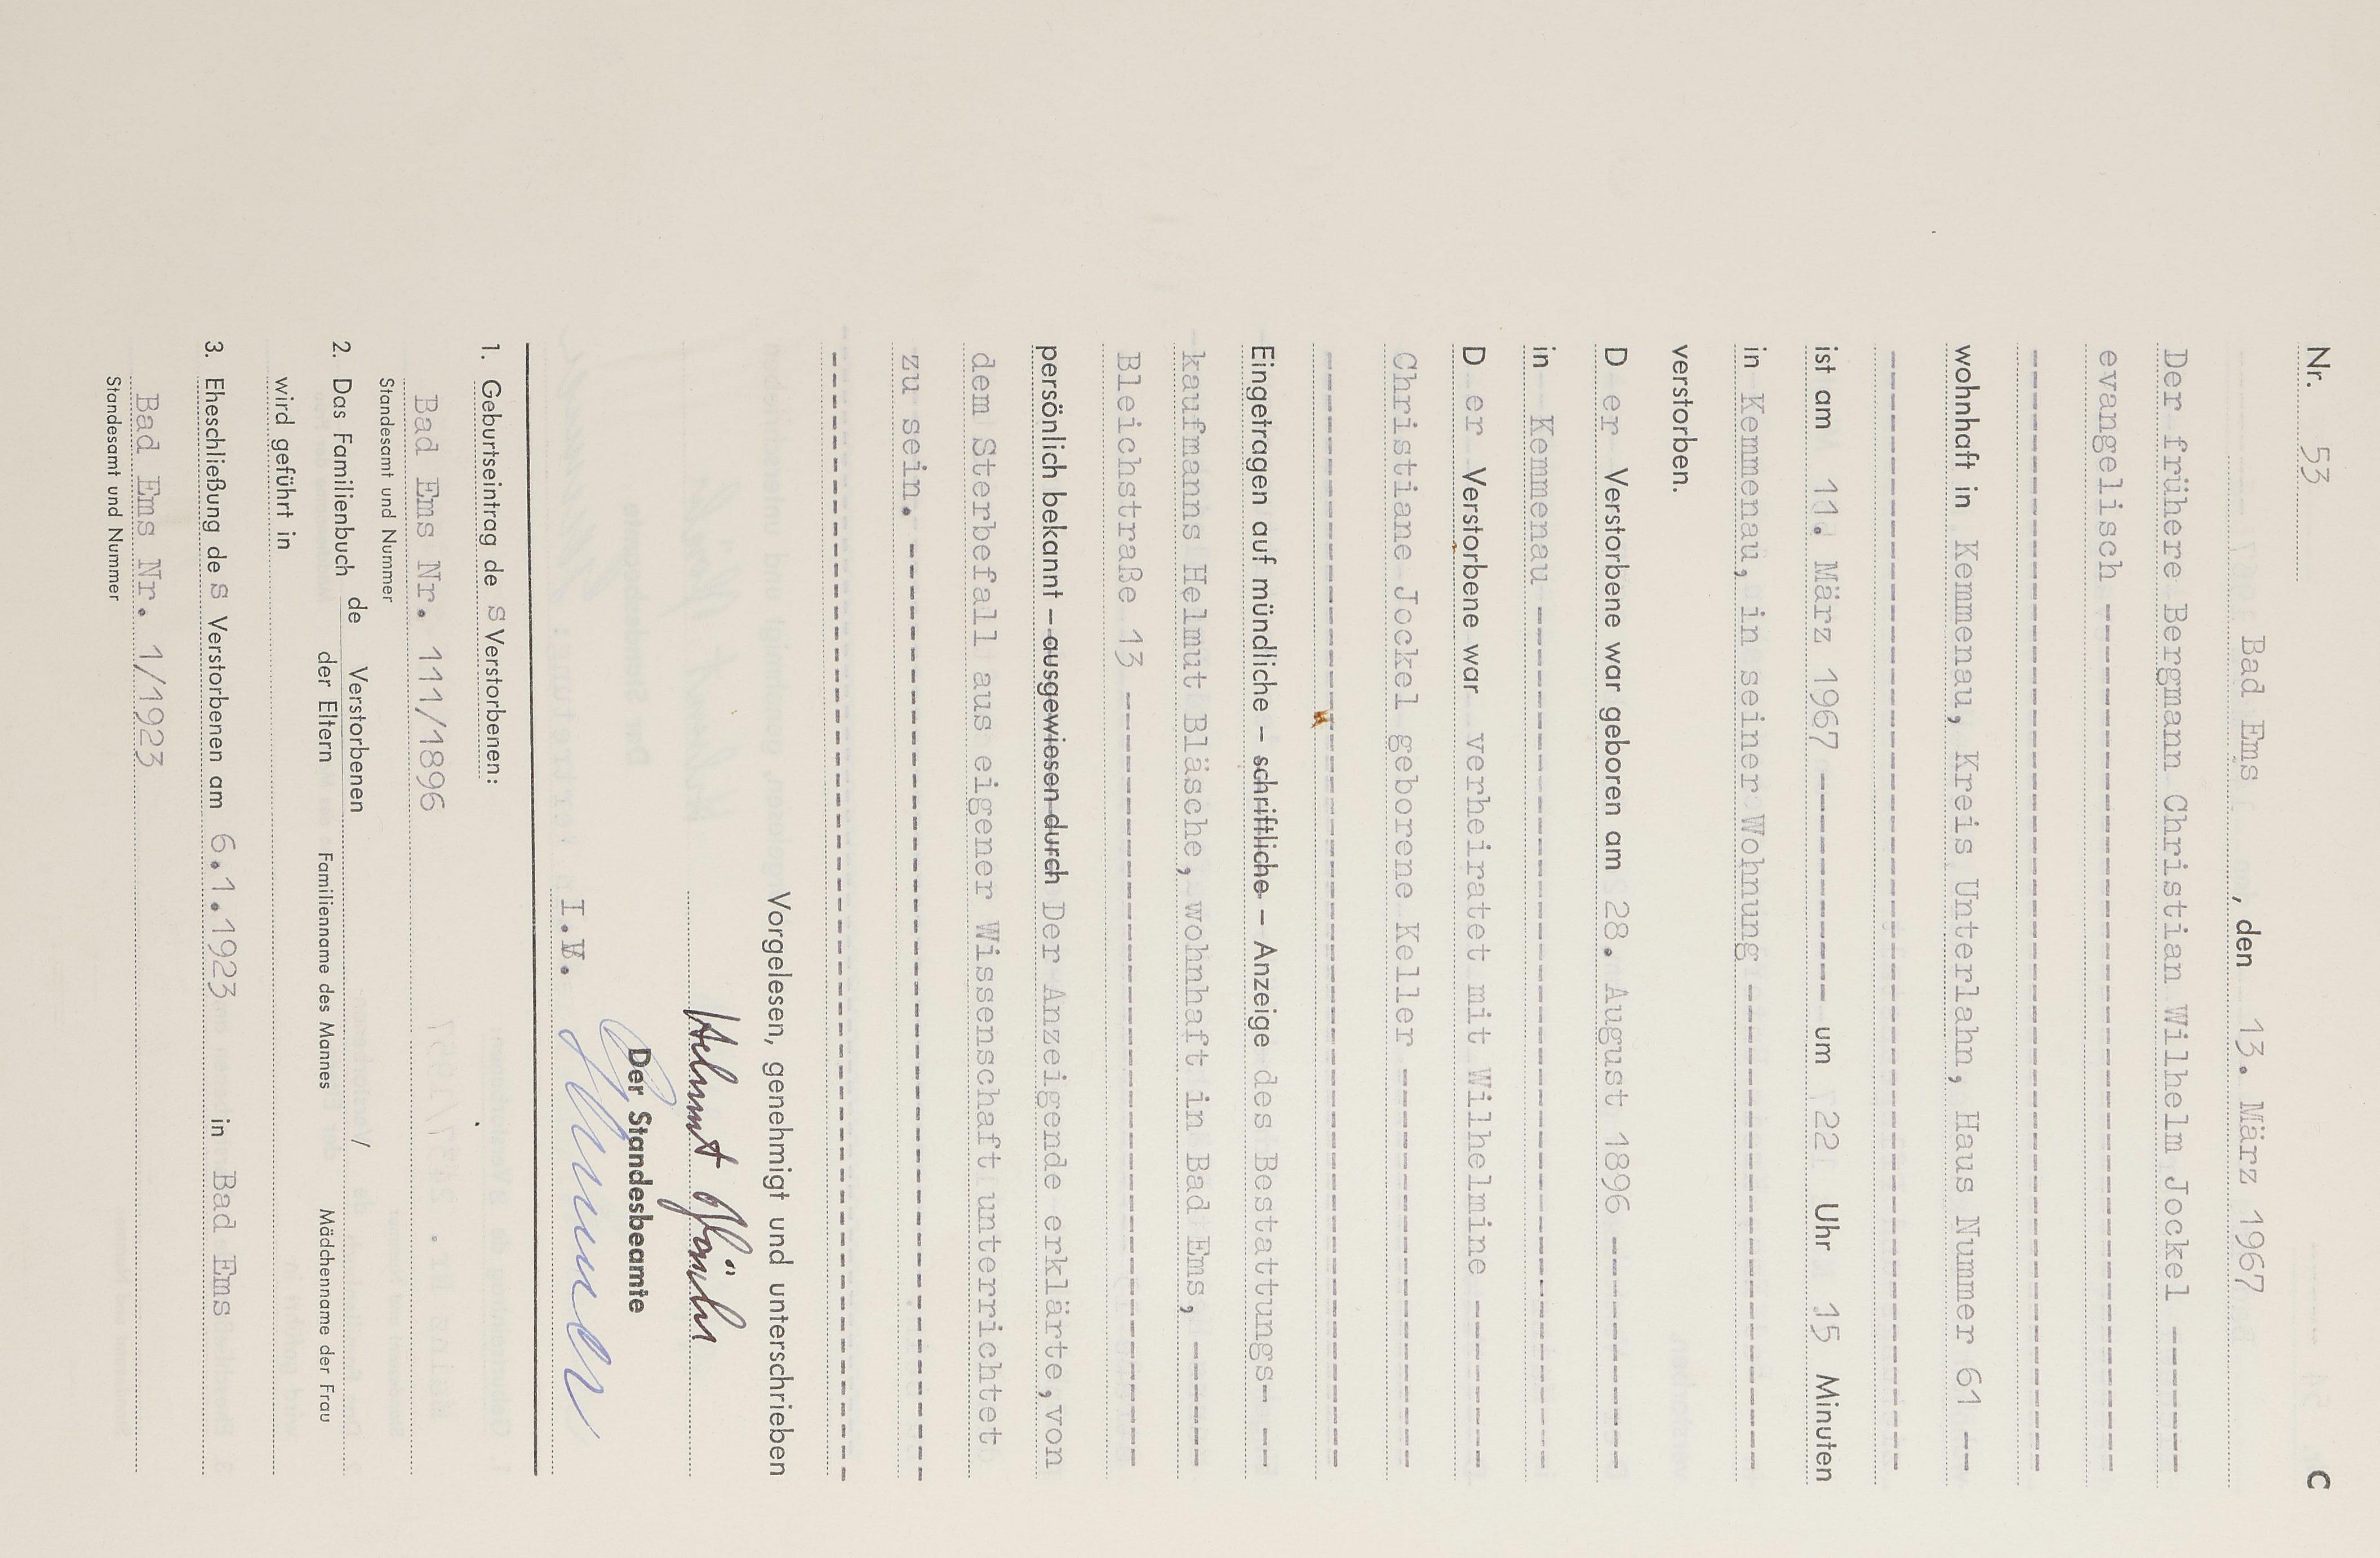 Nr. 53 C
Bad Ems, den 13. März 1967
Der frühere Bergmann Christian Wilhelm Jockel ------
evangelisch --------------------
wohnhaft in Kemmenau, Kreis Unterlahn, Haus Nummer 61 --
ist am 11. März 1967 ------------ um 22 Uhr 15 Minuten
in Kemmenau, in seiner Wohnung --------------------
verstorben.
D er Verstorbene war geboren am 28. August 1896 ----------
in Kemmenau --------------------
D er Verstorbene war verheiratet mit Wilhelmine -------
Christiane Jockel geborene Keller --------------------
Eingetragen auf mündliche – schriftliche – Anzeige des Bestattungs- --
kaufmanns Helmut Bläsche, wohnhaft in Bad Ems, ------
Bleichstraße 13 --------------------
persönlich bekannt – ausgewiesen durch Der Anzeigende erklärte, von
dem Sterbefall aus eigener Wissenschaft unterrichtet
zu sein. --------------------
Vorgelesen, genehmigt und unterschrieben
Helmut Bläsche
Der Standesbeamte
I.V.
1. Geburtseintrag de s Verstorbenen:
Bad Ems Nr. 111/1896
Standesamt und Nummer
2. Das Familienbuch de Verstorbenen /
der Eltern Familienname des Mannes Mädchenname der Frau
wird geführt in
3. Eheschließung de s Verstorbenen am 6.1.1923 in Bad Ems
Bad Ems Nr. 1/1923
Standesamt und Nummer